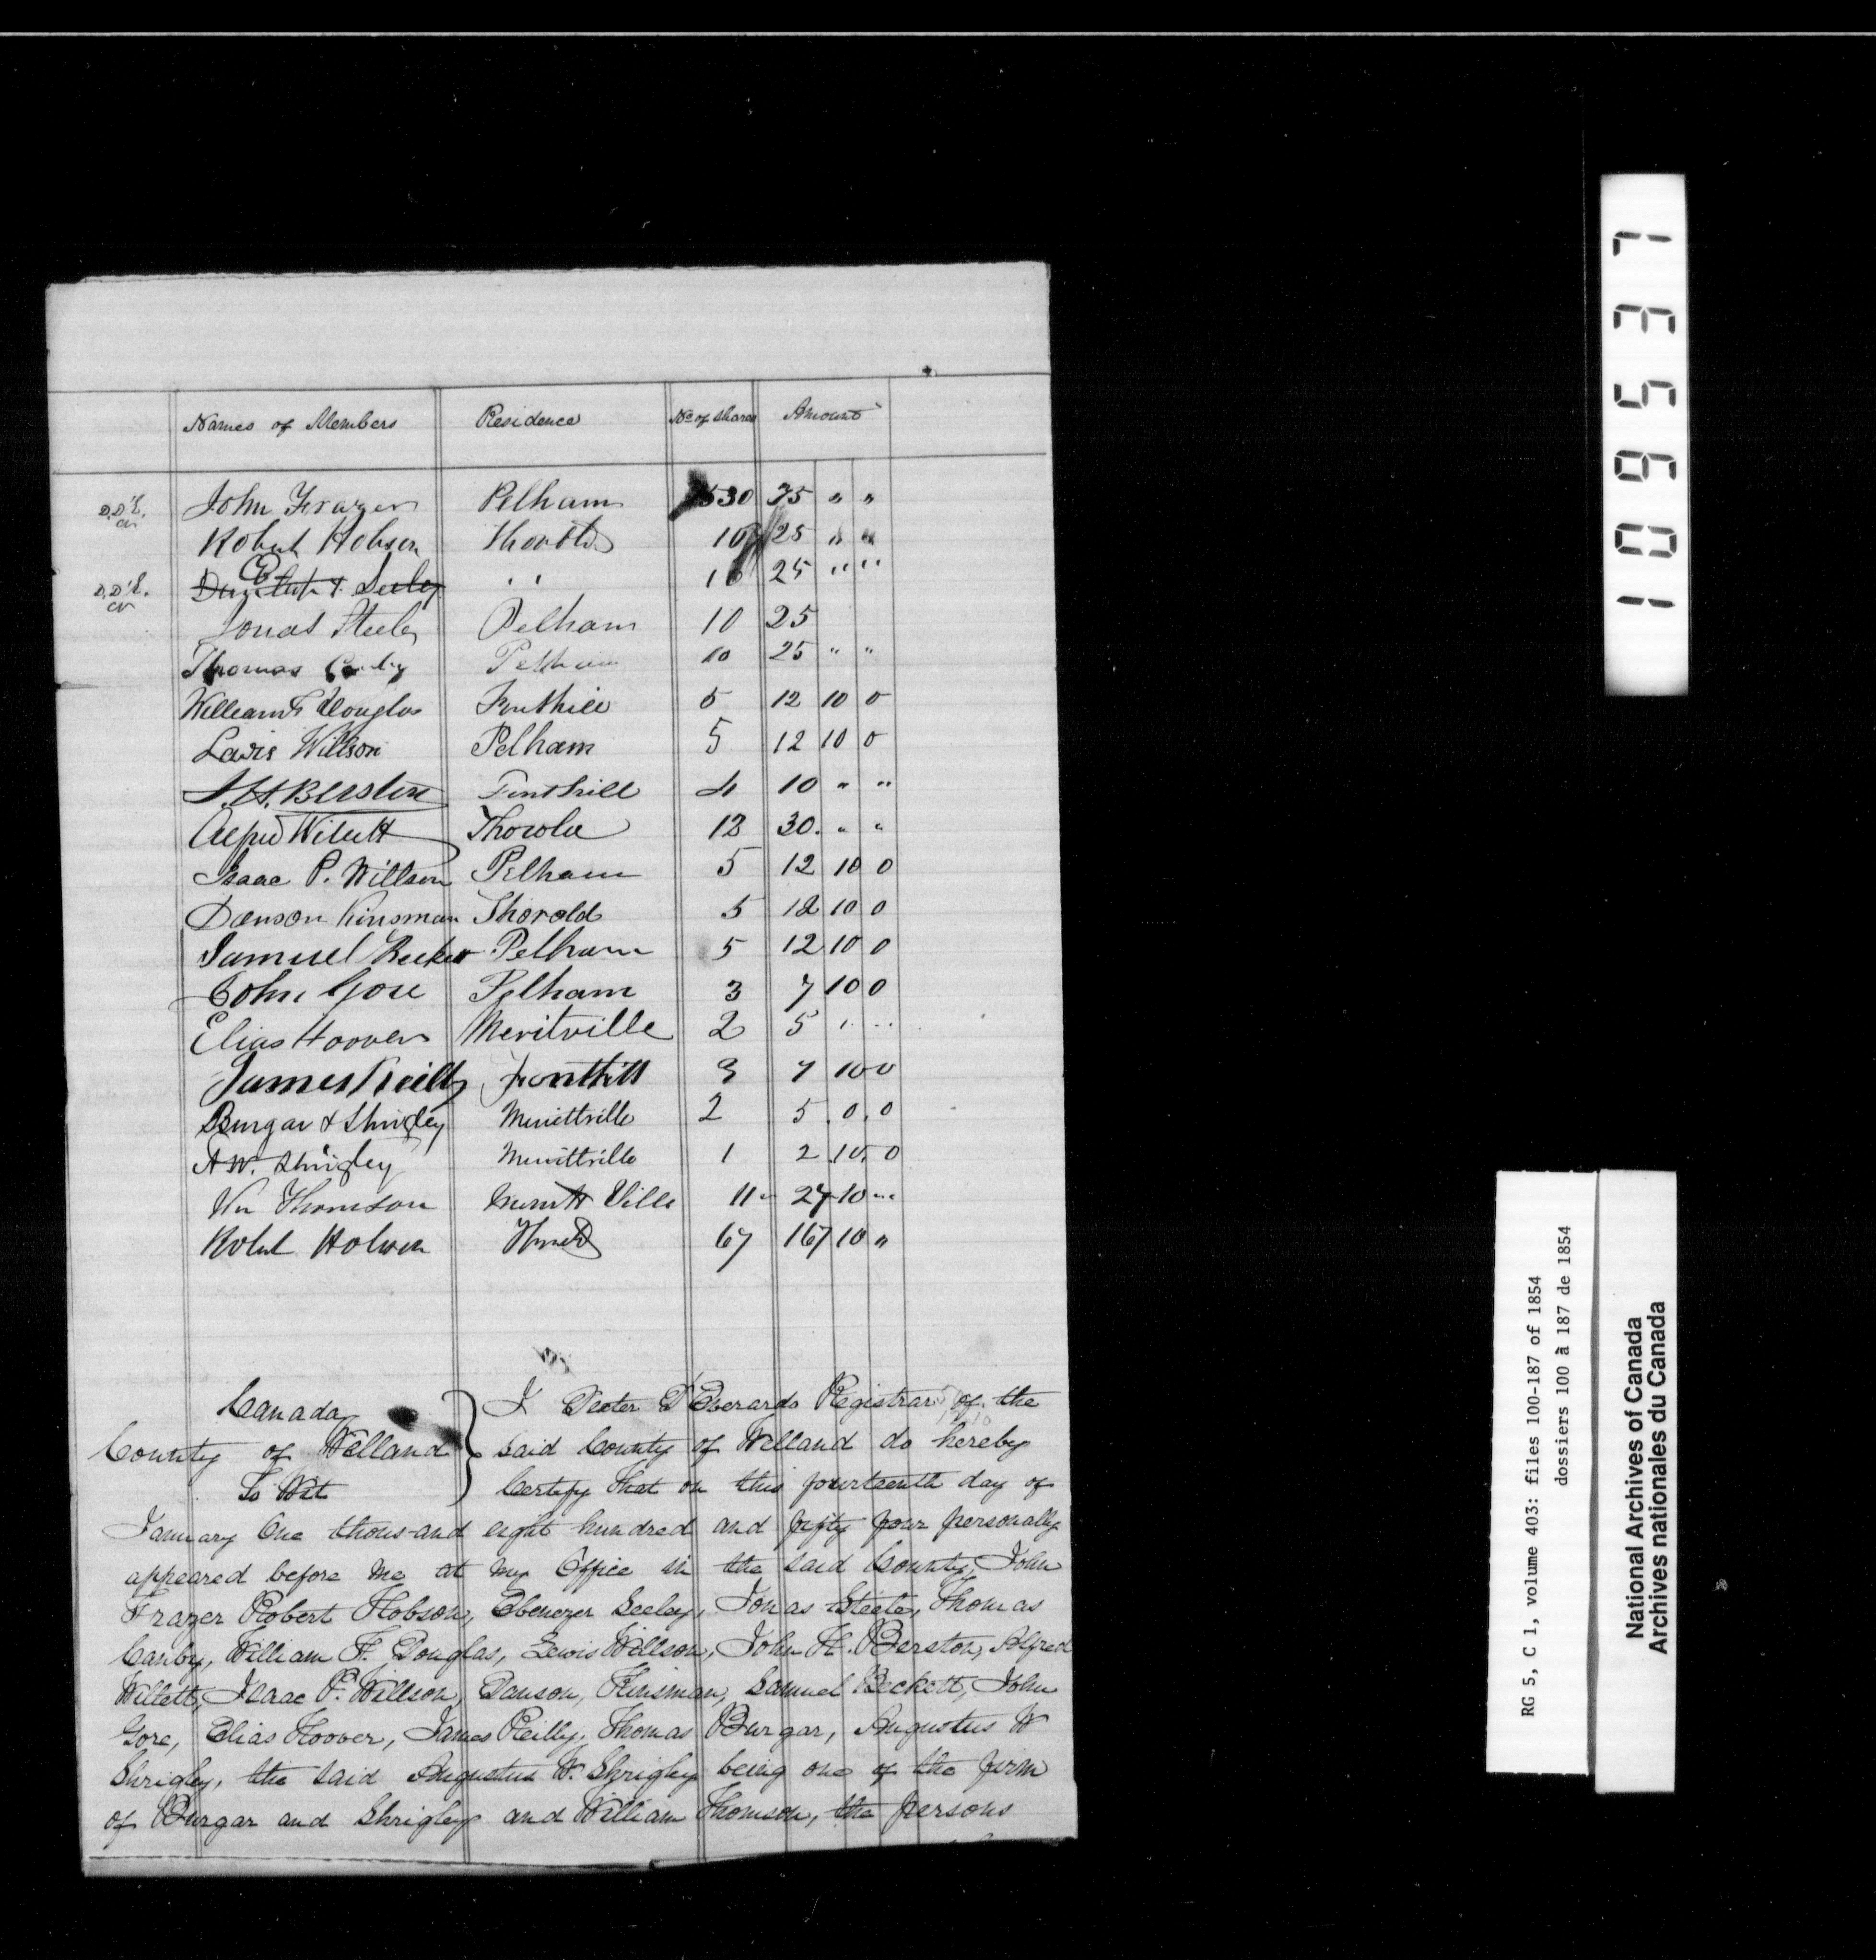 Names of Members Residence No of Shares Amount
D.D'E. John Frazer Pelham 30 75 " "
Robert Hobson Thorold 10 25 " "
D.D'E. E Seeley " " 10 25 " "
Jonas Steele Pelham 10 25
Thomas Canby Pelham 10 25 " "
William F Douglas Fonthill 5 12 10 0
Lewis Willson Pelham 5 12 10 0
J.H. Berston Fonthill 4 10 " "
Alfred Willett Thorold 12 30 " "
Isaac P. Willson Pelham 5 12 10 0
Danson Kinsman Thorold 5 12 10 0
Samuel Beckett Pelham 5 12 10 0
John Gore Pelham 3 7 10 0
Elias Hoover Meritville 2 5 " "
James Reilly Fonthill 3 7 10 0
Burgar & Shrigley Merrittville 2 5 0 0
A W. Shrigley Merrittville 1 2 10 0
Wm Thomson Merritt Ville 11 27 10 "
Robert Hobson Thorold 67 167 10 "
Canada I Dexter D'Everardo Registrar of the
County of Welland said County of Welland do hereby
To Wit Certify that on this fourteenth day of
January One thousand eight hundred and fifty four personally
appeared before me at my Office in the said County, John
Frazer Robert Hobson, Ebenezer Seeley, Jonas Steele, Thomas
Canby, William F. Douglas, Lewis Willson, John H. Berston, Alfred
Willett, Isaac P. Willson, Danson, Kinsman, Samuel Beckett, John
Gore, Elias Hoover, James Reilly, Thomas Burgar, Augustus W
Shrigley, the said Augustus W. Shrigley being one of the firm
of Burgar and Shrigley and William Thomson, the persons
109537
RG 5, C 1, volume 403: files 100-187 of 1854
dossiers 100 à 187 de 1854
National Archives of Canada
Archives nationales du Canada